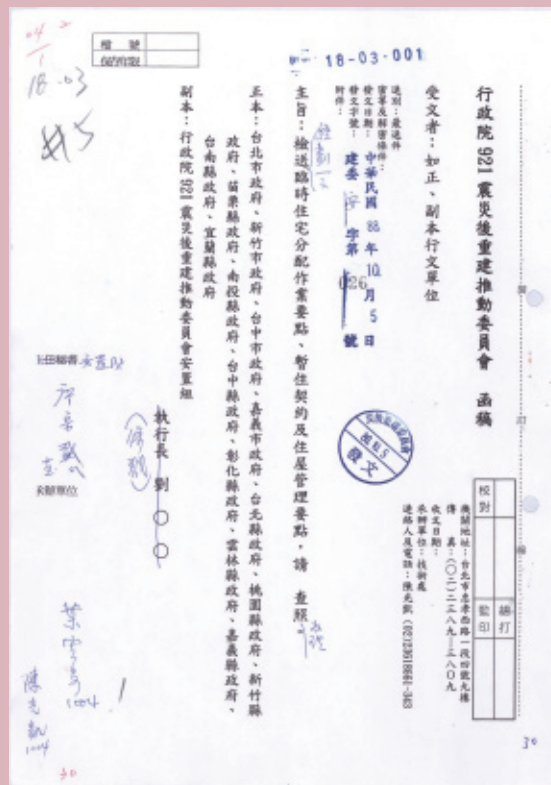 行政院 921 震災後重建推動委員會　函稿
校對
繕打
監印
機關地址：台北市忠孝西路一段四號九樓
傳　真：(〇二)二三八九—三八〇九
收文日期：
承辦單位：技術處
受文者：如正、副本行文單位
速別：最速件
密等及解密條件：
發文日期：中華民國 88 年 10 月 5 日
發文字號：建委 字第 026 號
附件：
18-03-001
主旨：檢送臨時住宅分配作業要點、暫住契約及住屋管理要點，請　查照
正本：台北市政府、新竹市政府、台中市政府、嘉義市政府、台北縣政府、桃園縣政府、新竹縣
政府、苗栗縣政府、南投縣政府、台中縣政府、彰化縣政府、雲林縣政府、嘉義縣政府、
台南縣政府、宜蘭縣政府
副本：行政院 921 震災後重建推動委員會安置組
執行長　劉 〇 〇
檔號
保存年限
發文
88.10.5
18-03
#5
1004
1004
30
30